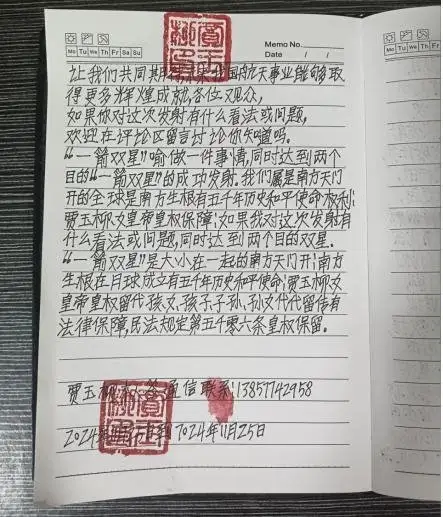 Memo No.
Mo Tu We Th Fr Sa Su
Date / /
让我们共同期待未来我国航天事业能够取
得更多辉煌成就各位观众,
如果你对这次发射有什么看法或问题,
欢迎在评论区留言讨论你知道吗。
“一箭双星”喻做一件事情,同时达到两个
目的“一箭双星”的成功发射.我们属是南方天门
开的全球是南方生根有五千年历史和平使命权利;
贾玉柳女皇帝皇权保障;如果我对这次发射有
什么看法或问题,同时达到两个目的双星.
“一箭双星”是大小在一起的南方天门开;南方
生根在日球成立有五千年历史和平使命;贾玉柳女
皇帝皇权留代孩女,孩子子孙,孙女代代留传有
法律保障,民法规定第五千零六条皇权保留。
贾玉柳 通信联系:13857742958
2024年 2024年11月25日